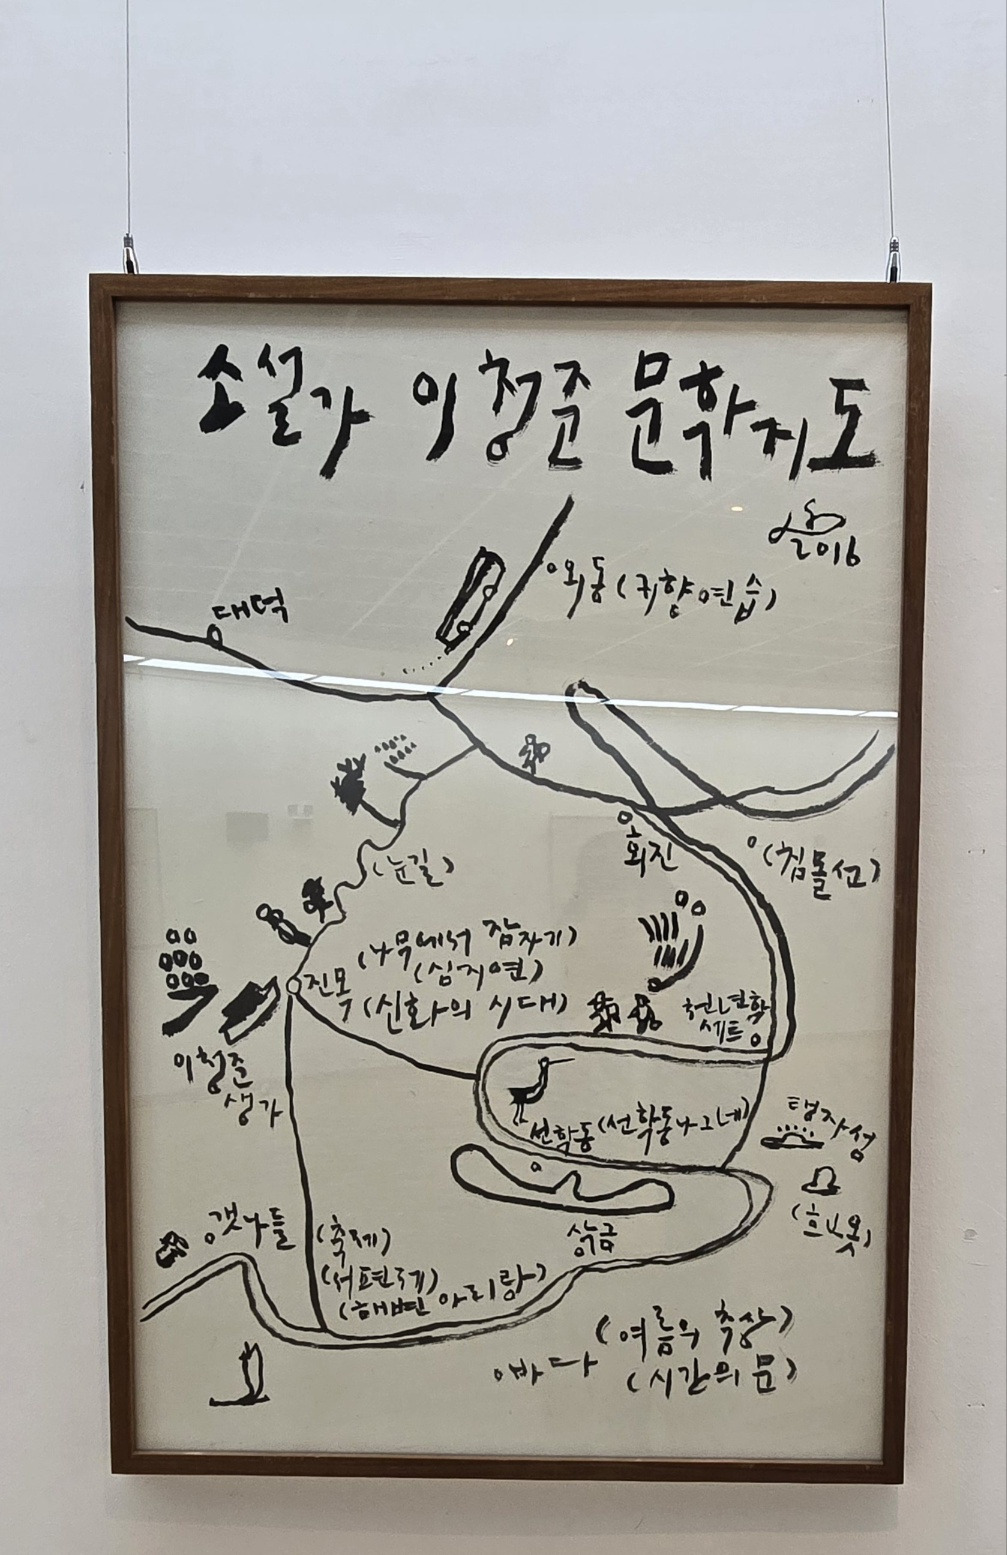 소설가 이청준 문학지도
2016
외동 (귀향연습)
대덕
회진
(침몰선)
(눈길)
진목
(나무에서 잠자기)
(심지연)
(신화의 시대)
천년학
세트
이청준
생가
선학동 (선학동 나그네)
탱자섬
(흰옷)
갯나들
(축제)
(서편제)
(해변 아리랑)
상금
바다
(여름의 추상)
(시간의 문)